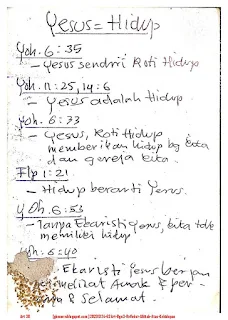 Yesus = Hidup
Yoh. 6:35
- Yesus sendiri Roti Hidup
Yoh. 11:25, 14:6
- Yesus adalah Hidup
Yoh. 6:33
- Yesus, Roti Hidup
memberikan hidup bg kita
dan gereja kita.
Flp 1:21
- Hidup berarti Yesus.
Yoh. 6:53
- Tanpa Ekaristi Yesus, kita tdk
memiliki hidup
Yoh. 6:40
- Ekaristi Yesus
melihat Anak & per
& Selamat.